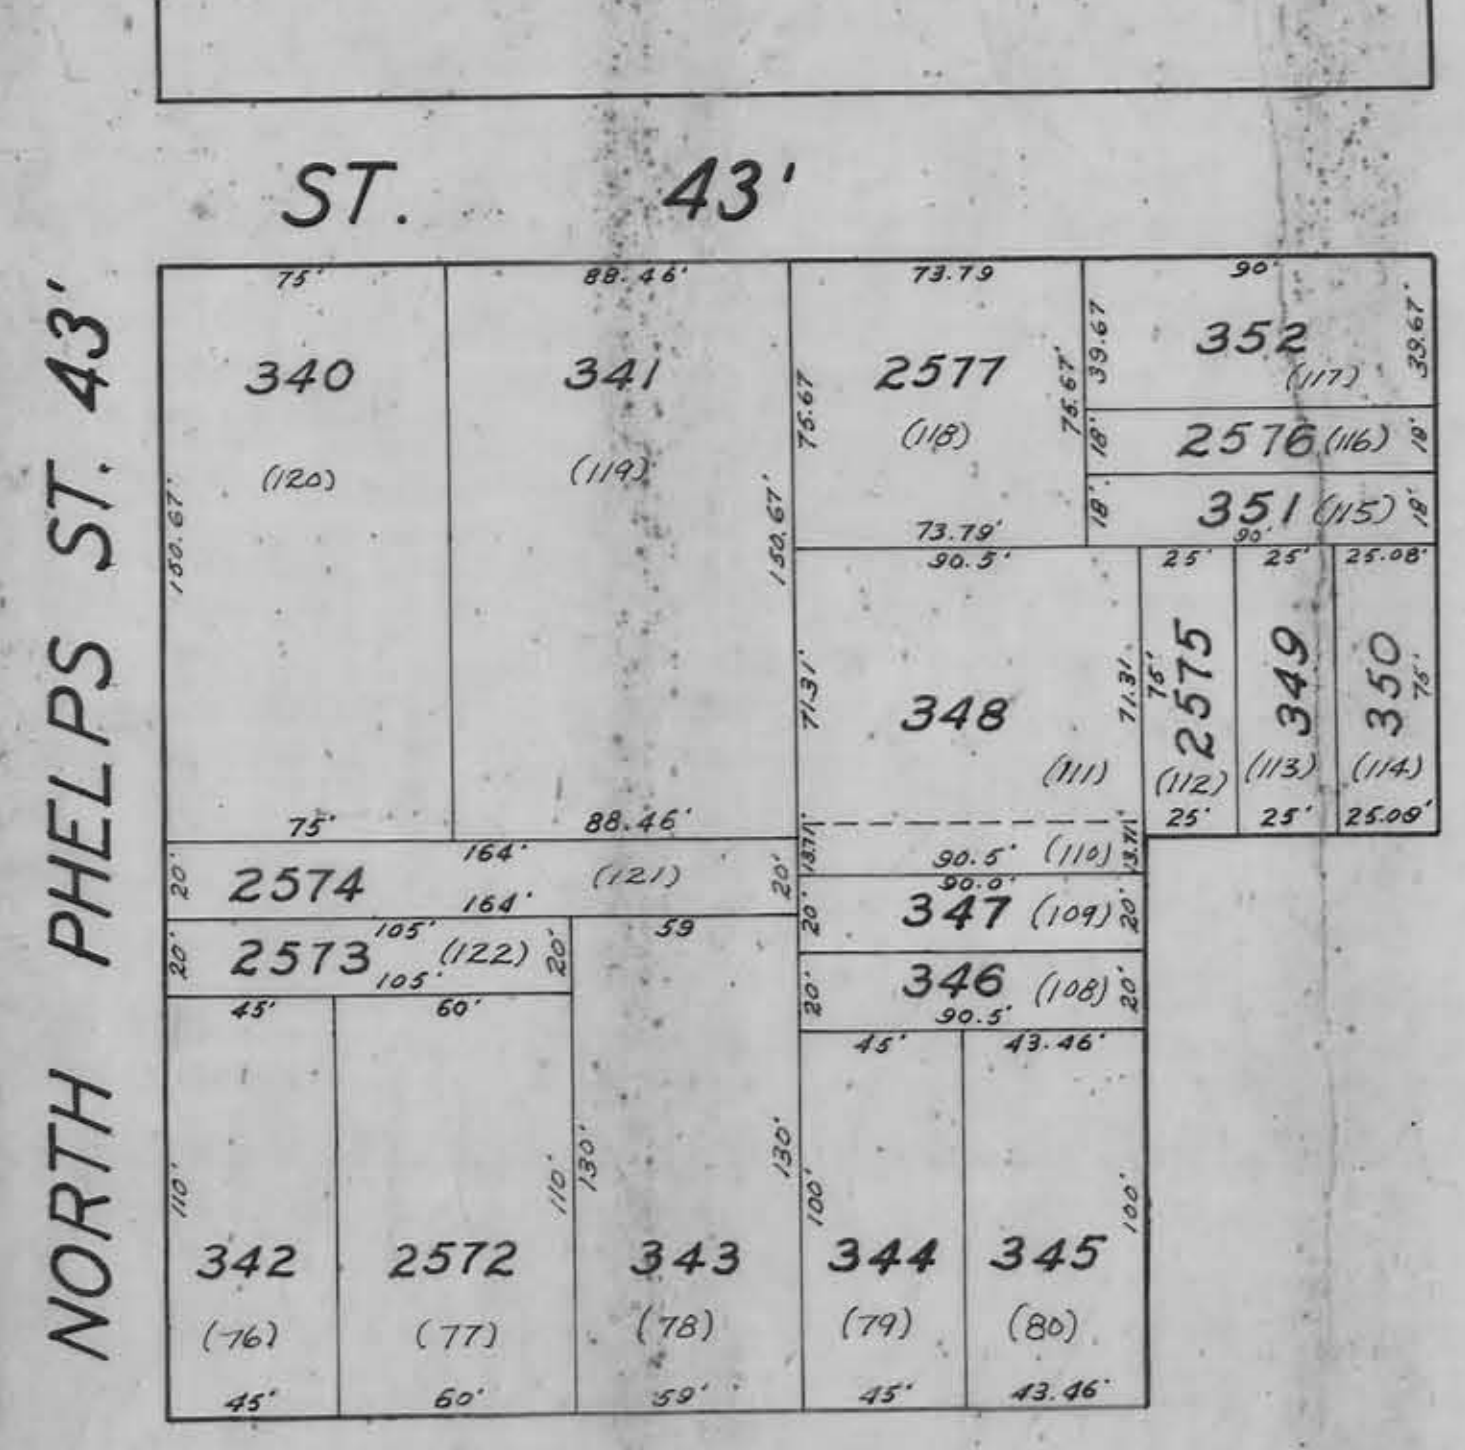 ST. 43'
NORTH PHELPS ST. 43'
75'
340
(120)
150.67'
75'
88.46'
341
(119)
150.67'
88.46'
73.79
2577
(118)
75.67
75.67'
73.79'
90'
352
(117)
39.67
39.67'
18'
2576 (116)
18'
18'
351 (115)
18'
90'
90.5'
348
71.31'
71.31
(111)
13.71'
90.5' (110)
13.71'
25'
75'
2575
(112)
25'
25'
349
(113)
25'
25.08'
350
75'
(114)
25.08'
164'
20'
2574
(121)
20'
164'
105'
20'
2573
(122)
20'
105'
90.0'
20'
347 (109)
20'
20'
346 (108)
20'
90.5'
45'
110'
342
(76)
45'
60'
110'
2572
(77)
60'
59
130'
130'
343
(78)
59'
45'
100'
344
(79)
45'
43.46'
100'
345
(80)
43.46'